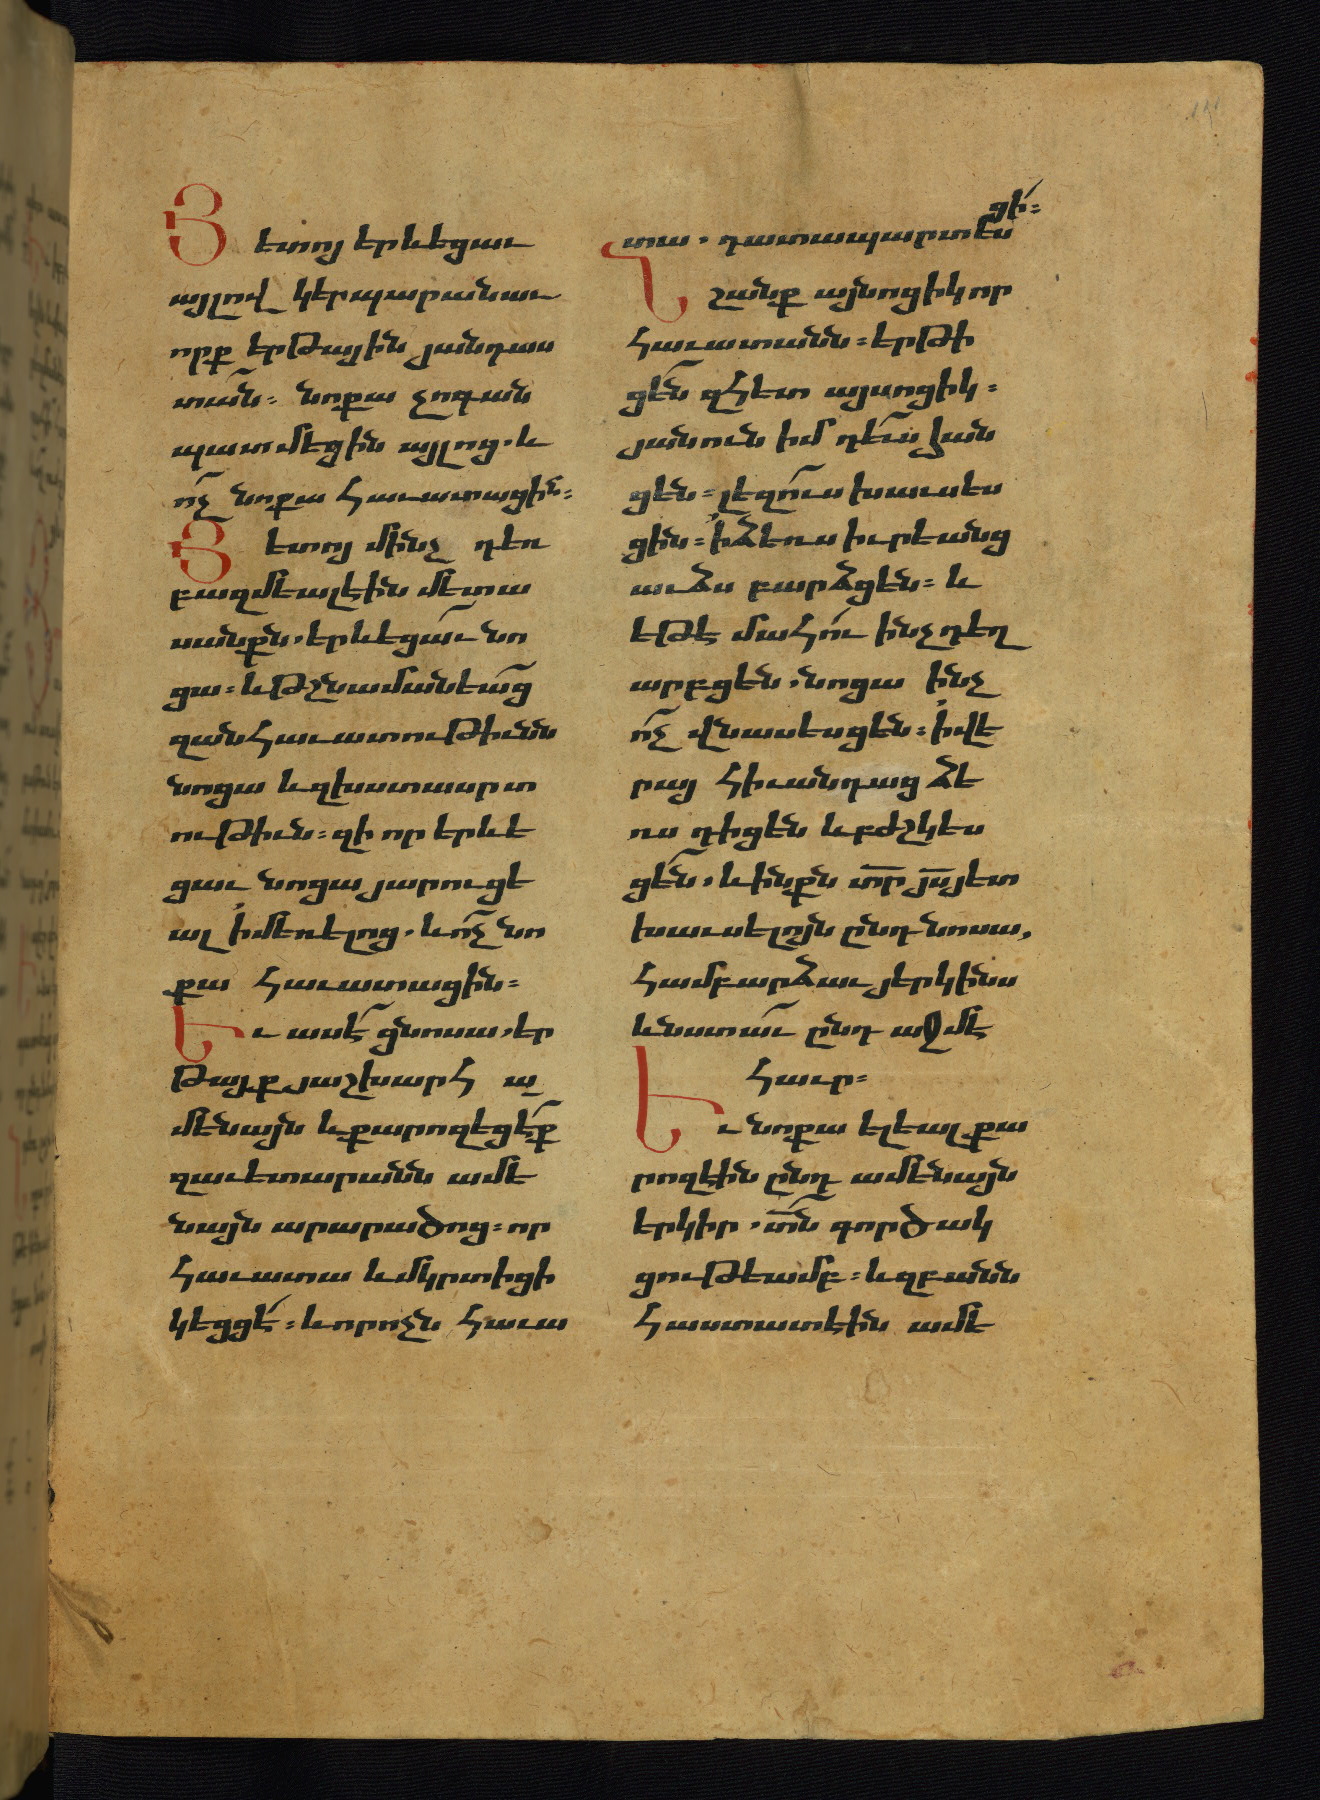 Յետոյ երևեցաւ
այլով կերպարանաւ
որք երթային յանդաս
տան։ նոքա չոգան
պատմեցին այլոց. և
ոչ նոքա հաւատացին։
Յետոյ մինչ դեռ
բազմեալէին մետա
սանքն. երևեցաւ նո
ցա։ ևթշնամանեաց
զանհաւատութիւնն
նոցա ևզխստասրտ
ութիւն։ զի որ երևե
ցաւ նոցա յարուցե
ալ իմեռելոց. ևոչ նո
քա հաւատացին։
Եւ ասէ ցնոսա. եր
թայք յաշխարհ ա
մենայն ևքարոզեցէք
զաւետարանն ամե
նայն արարածոց։ որ
հաւատա ևմկրտիցի
կեցցէ։ ևորոչն հաւա
ցի։
տա. դատապարտես
Նշանք այնոցիկ որ
հաւատանն։ երթի
ցեն զհետ այսոցիկ։
յանուն իմ դեւս հան
ցեն։ լեզուս խաւսես
ցին։ իձեռս իւրեանց
աւձս բարձցեն։ և
եթէ մահու ինչ դեղ
արբցեն. նոցա ինչ
ոչ վնասեսցեն։ իվե
րայ հիւանդաց ձե
ռս դիցեն ևբժշկես
ցեն. ևինքն տր յս յետ
խաւսելոյն ընդ նոսա,
համբարձաւ յերկինս
ևնստաւ ընդ աջմէ
հաւր։
Եւ նոքա ելեալ քա
րոզէին ընդ ամենայն
երկիր. տն գործակ
ցութեամբ։ ևզբանն
հաստատէին ամե